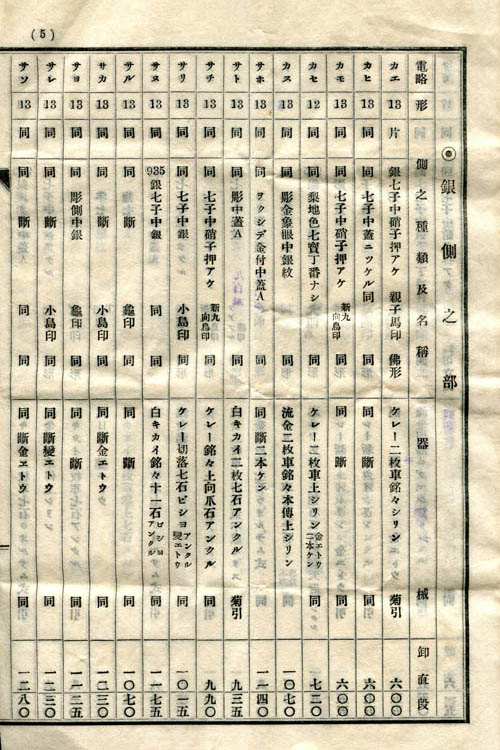 (5)
◉銀側之部
電略 形 側之種類及名稱 器械 卸直段
カエ 13 片 銀七子中硝子押アケ 親子馬印 佛形 ケレー二枚車銘々シリン 菊引 六〇〇
カヒ 13 同 同 七子中蓋ニツケル 同 同 同 斷 同 六〇〇
カモ 13 同 同 七子中硝子押アケ 新九向島印 同 同 斷 同 六〇〇
カセ 12 同 梨地色七寶丁番ナシ 同 ケレー二枚車上シリン 金エトウ二本ケン 同 七二〇
カス 13 同 同 彫金象眼中銀紋 同 流金二枚車銘々本傳上シリン 同 一〇七〇
サホ 13 同 同 ヲクシデ金付中蓋A 同 同 斷二本ケン 同 一一四〇
サト 13 同 同 彫中蓋A 同 同 白キカイ二枚七石アンクル 菊引 九三五
サチ 13 同 同 七子中硝子押アケ 新九向島印 同 ケレー銘々上向爪石アンクル 同 九九〇
サリ 13 同 同 七子中銀 小島印 同 ケレー切落七石ビショ アンクル變エトウ 同 一〇二五
サヌ 13 同 935銀七子中銀 同 同 白キカイ銘々十一石 ビショアンクル 同 一一七五
サル 13 同 同 斷 龜印 同 同 斷 同 一〇七〇
サカ 13 同 同 斷 小島印 同 同 斷金エトウ 同 一二三〇
サヨ 13 同 同 彫側中銀 龜印 同 同 斷 同 一一二五
サレ 13 同 同 斷 小島印 同 同 斷變エトウ 同 一二三〇
サソ 13 同 同 斷 同 同 同 斷金エトウ 同 一二八〇